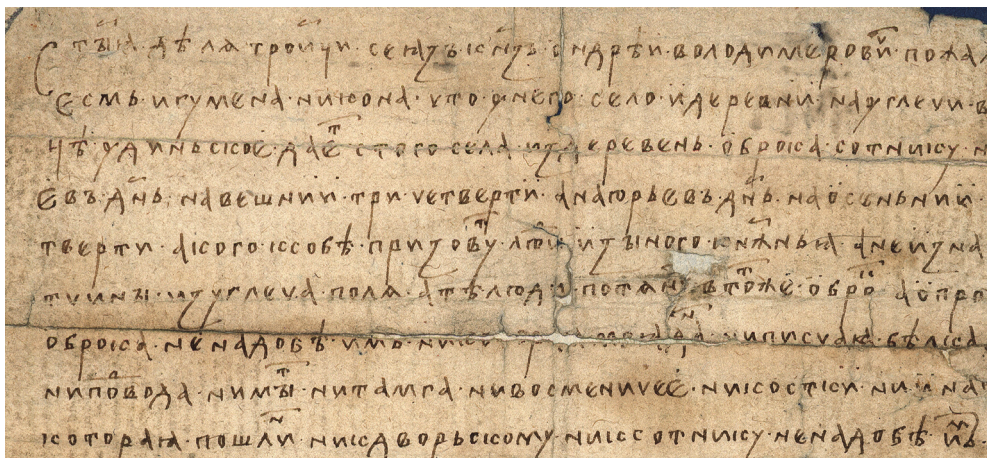 тыꙗ дѣлѧ троици се ꙗзъ кнѧз ондрѣи володимерови пожа
есмь игумена никона что ѹ него село и деревни на ѹглечи в
цѣ ѹдиньское дає с того села из деревень ѡброка сотнику
евъ днь на вешнии три четверти а на юрьевъ днь на ѡсеньнии
тверти а кого к собѣ призову люи из ыного кнѧжньꙗ а не из на
тчины из углеча поля а тѣ люди потѧну в тоже ѡбро а ѡпро
ѡброка не надобѣ имъ ники писчаꙗ бѣлка
ни повода ни мы ни тамга ни восмничее ни костки ни
которая пошли ни к дворьскому ни к сотнику не надобѣ